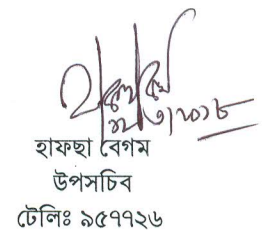 হাফছা বেগম
উপসচিব
টেলিঃ ৯৫৭৭২৬